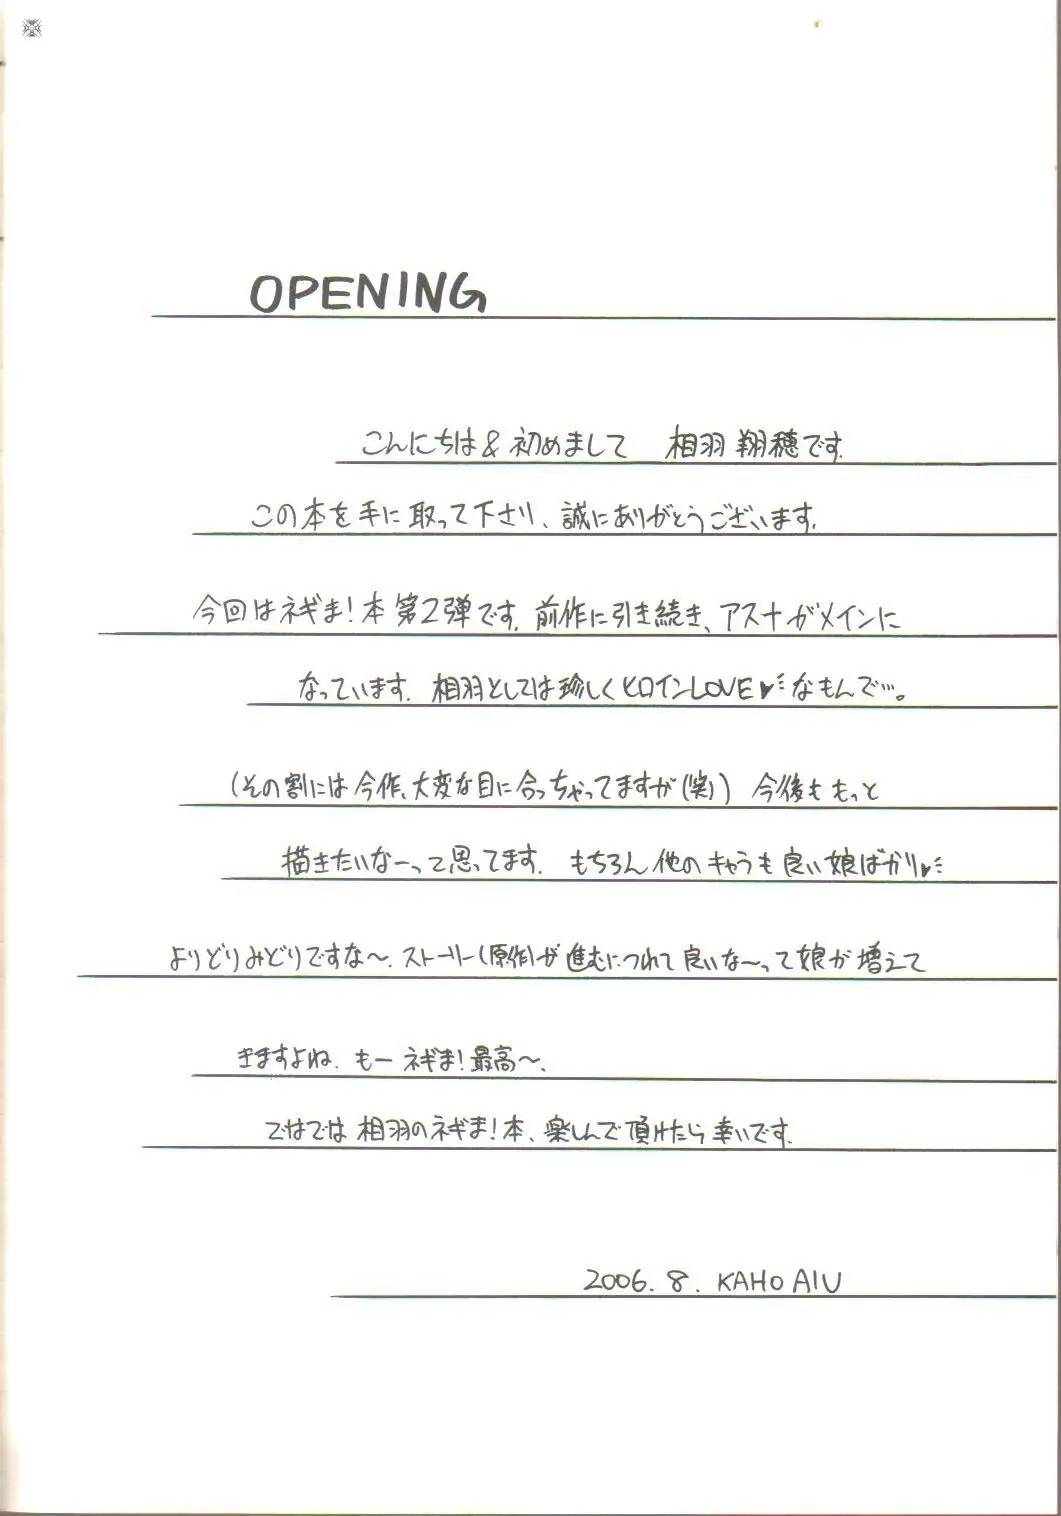 OPENING
こんにちは&初めまして 相羽 翔穂です.
この本を手に取って下さり、誠にありがとうございます.
今回はネギま!本 第2弾です. 前作に引き続き、アスナがメインに
なっています. 相羽としては珍しくヒロインLOVE♥なもんで…。
(その割には今作、大変な目に合っちゃってますが(笑)) 今後ももっと
描きたいなーって思ってます. もちろん他のキャラも良い娘ばかり♥
よりどりみどりですな〜. ストーリー(原作)が進むにつれて良いな〜って娘が増えて
きますよね. もー ネギま!最高〜.
ではでは 相羽のネギま!本、楽しんで頂けたら幸いです.
2006. 8. KAHO AIU